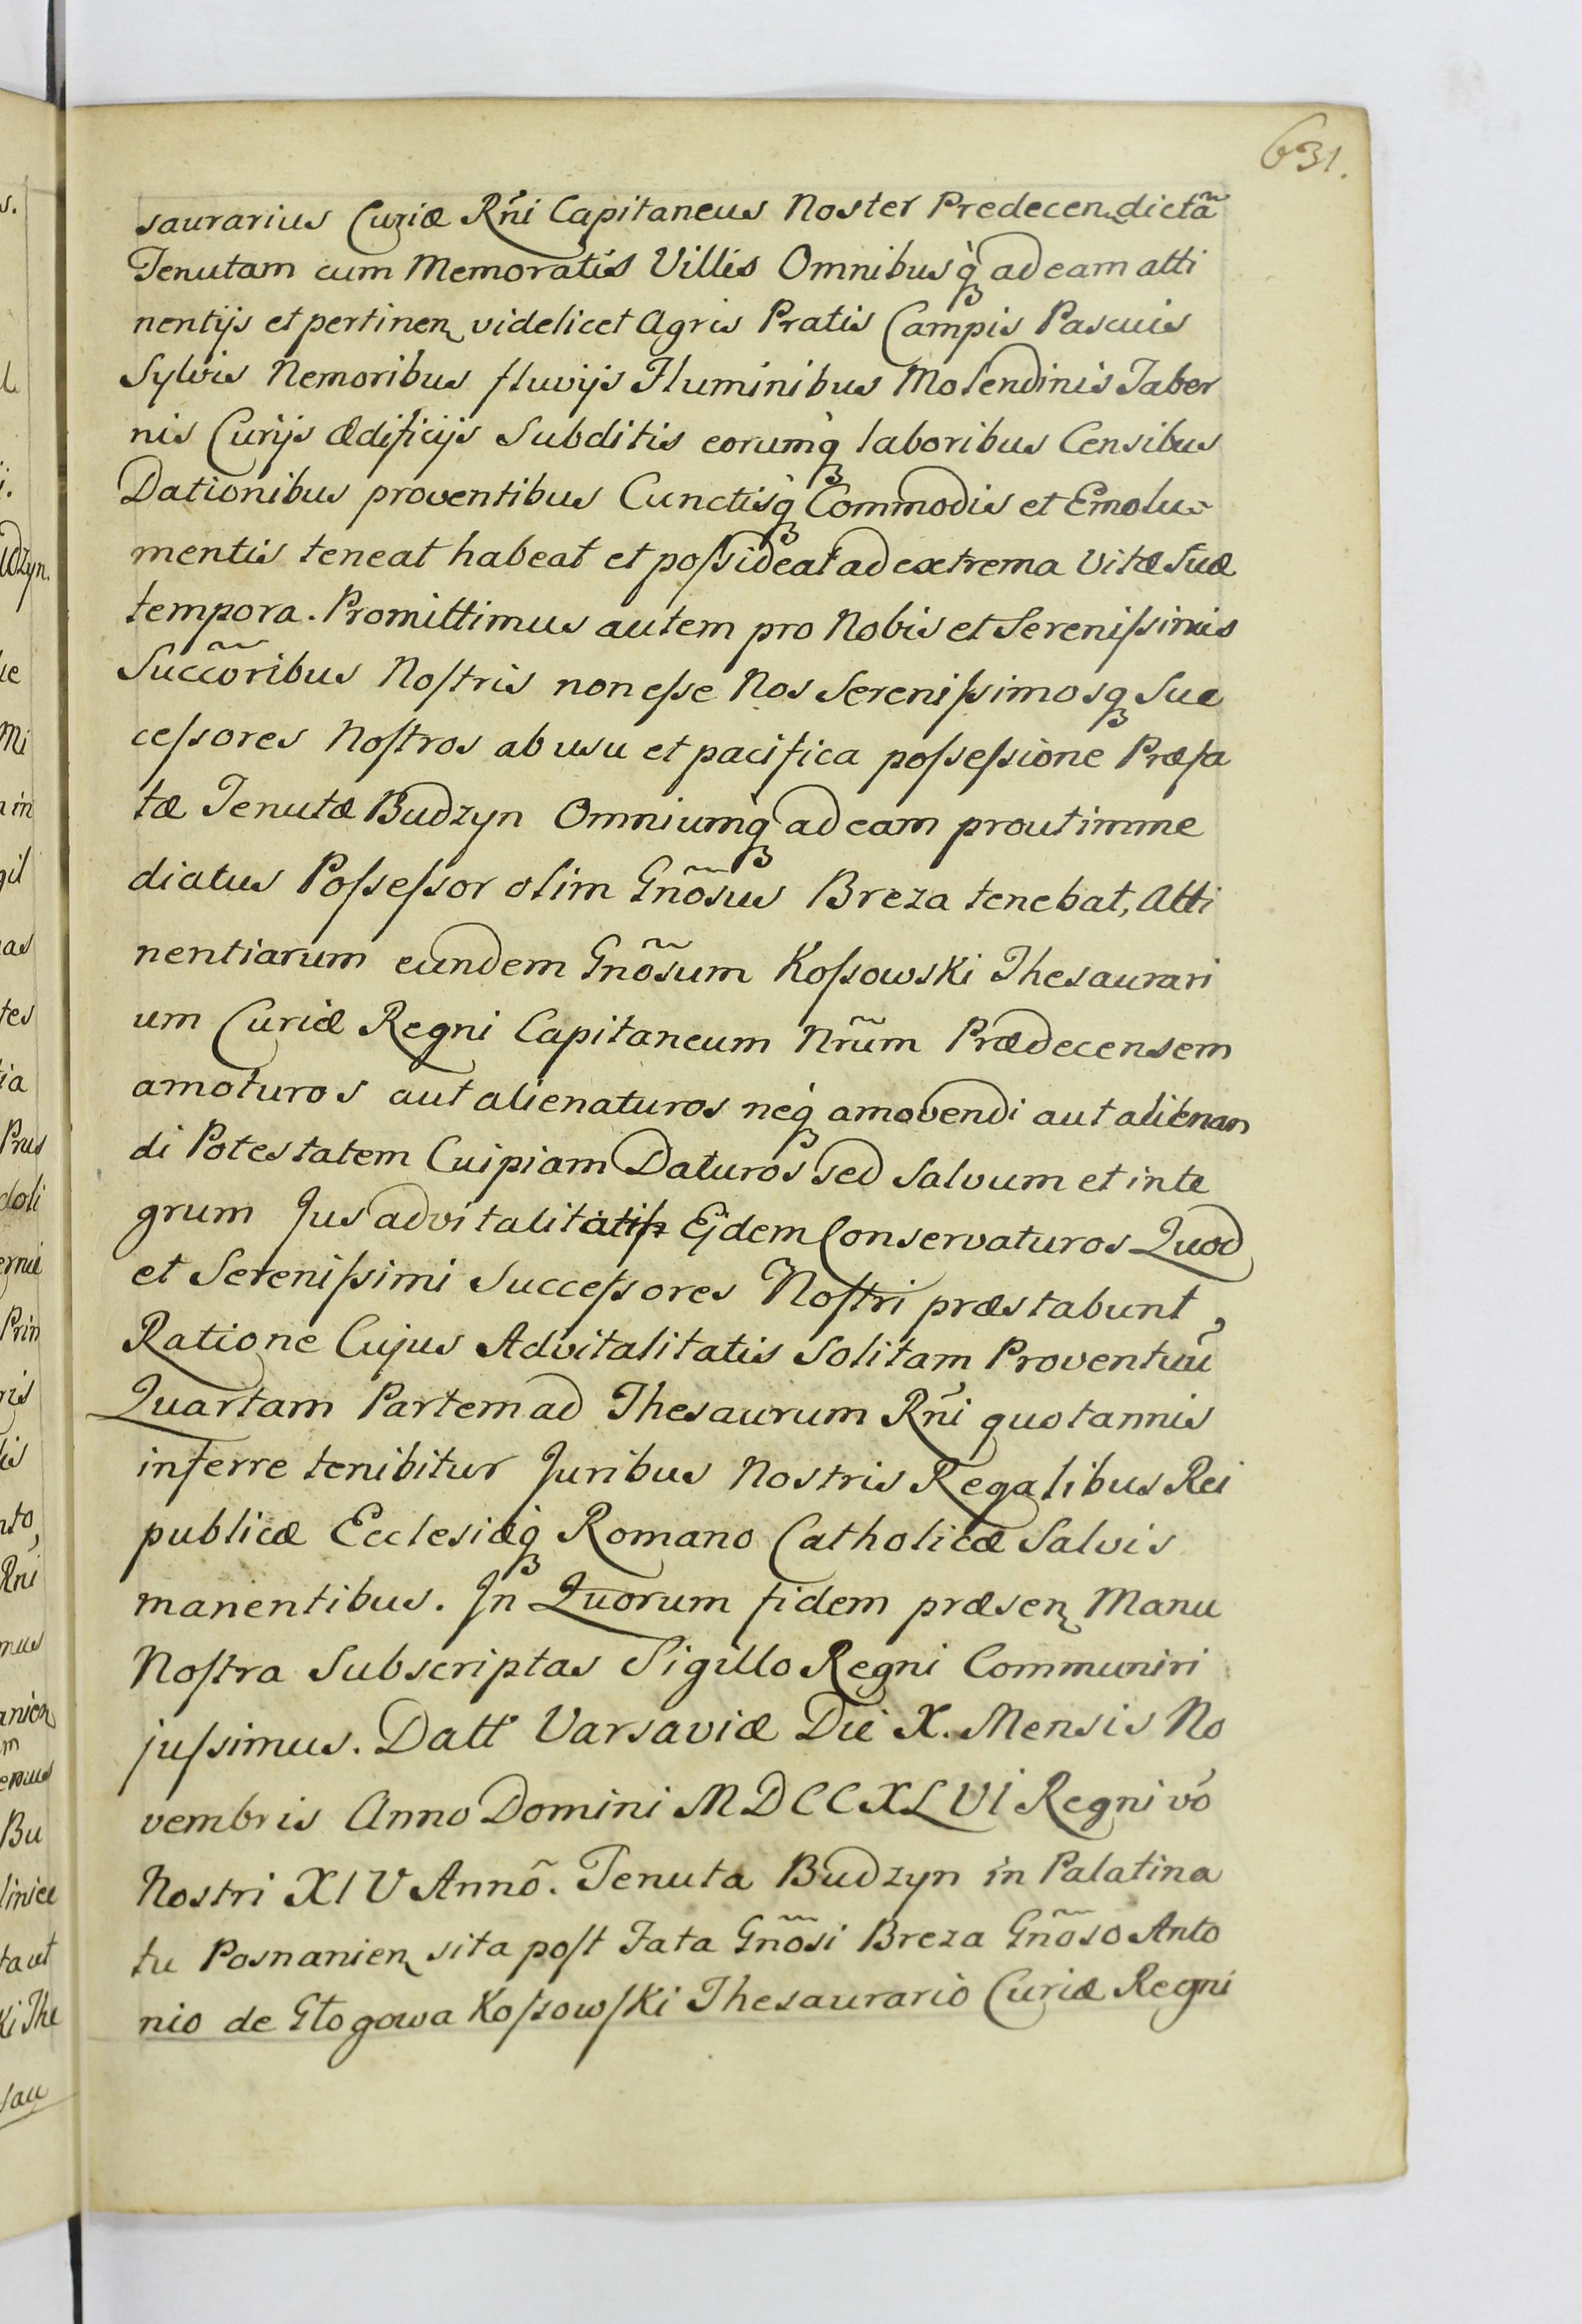 631.
saurarius Curiæ Rñi Capitaneus Noster Predecen dictã
Tenutam cum Memoratis Villis Omnibusq́ ad eam atti
nentijs et pertinen videlicet Agris Pratis Campis Pascuis
Sylvis Nemoribus fluvijs Fluminibus Molendinis Taber
nis Curijs Ædificijs Subditis eorumq́ laboribus Censibus
Dationibus proventibus Cunctisq́ Commodis et Emolu
mentis teneat habeat et poſsideat ad extrema Vitæ Suæ
tempora. Promittimus autem pro Nobis et Sereniſsimis
Succõribus Noſtris non eſse Nos Sereniſsimosq Suc
ceſsores Noſtros ab usu et pacifica poſseſsione Præfa
tæ Tenutæ Budzyn Omniumq́ ad eam prout imme
diatus Poſseſsor olim Gnõsus Breza tenebat, Atti
nentiarum eundem Gnõsum Koſsowski Thesaurari
um Curiæ Regni Capitaneum Nrũm Prædecensem
amoturos aut alienaturos neq́ amovendi aut alienan
di Potestatem Cuipiam Daturos sed Salvum et inte
grum Jus advitalitatiſs Ejdem Conservaturos Quod
et Sereniſsimi Succeſsores Noſtri præstabunt,
Ratione Cujus Advitalitatis Solitam Proventuũ
Quartam Partem ad Thesaurum Rñi quotannis
inferre tenibitur Juribus Nostris Regalibus Rei
publicæ Ecclesiæq́ Romano Catholicæ Salvis
manentibus. Jn Quorum fidem præsen Manu
Noſtra Subscriptas Sigillo Regni Communiri
juſsimus. Datt Varsaviæ Die X. Mensis No
vembris Anno Domini MDCCXLVI Regni vó
Nostri XIV Annõ. Tenuta Budzyn in Palatina
tu Posnanien sita poſt Fata Gnõsi Breza Gnõso Anto
nio de Głogowa Koſsowſki Thesaurario Curiæ Regni